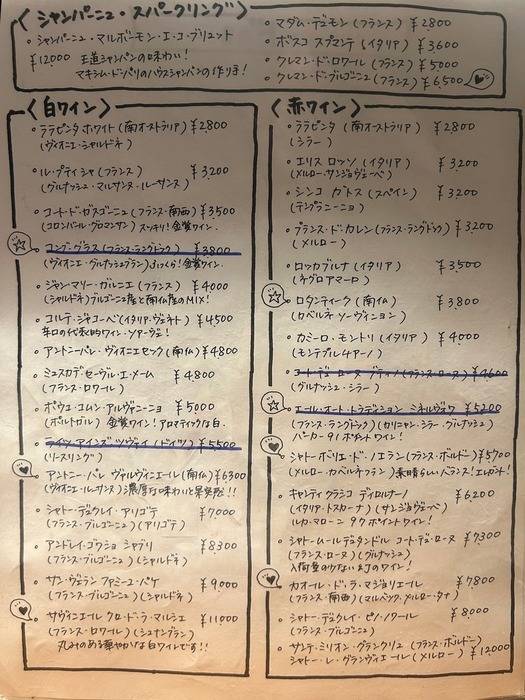 〈シャンパーニュ・スパークリング〉
・シャンパーニュ・マルボンモン・エ・コ・ブリュット
¥12000 王道シャンパンの味わい!
マキシム・ド・パリのハウスシャンパンの作り手!
・マダム・デュモン(フランス) ¥2800
・ボスコ スプマンテ(イタリア) ¥3600
・クレマン・ド・ロワール(フランス) ¥5000
・クレマン・ド・ブルゴーニュ(フランス) ¥6500
〈白ワイン〉
・ララピンタ ホワイト(南オーストラリア) ¥2800
(ヴィオニエ・シャルドネ)
・ル・プティ シャ(フランス) ¥3200
(グルナッシュ・マルサンヌ・ルーサンヌ)
・コート・ド・ガスゴーニュ(フランス・南西) ¥3500
(コロンバール・グロマンサン) スッキリ!金賞ワイン.
・コング・グラス(フランス・ラングドック) ¥3800
(ヴィオニエ・グルナッシュブラン) ふっくら!金賞ワイン.
・ジャン・マリー・ガルニエ(フランス) ¥4000
(シャルドネ) ブルゴーニュ産と南仏産のMIX!
・コルテ・ジャコーベ(イタリア・ヴェネト) ¥4500
辛口の代表的ワイン・ソアーヴェ!
・アントニー・パレ・ヴィオニエセック(南仏) ¥4800
・ミュスカデ・セーヴル・エ・メーム ¥4800
(フランス・ロワール)
・ポウエ コムン・アルヴァニーニョ ¥5000
(ポルトガル) 金賞ワイン!アロマティックな白.
・ライツ アインズツヴァイ(ドイツ) ¥5500
(リースリング)
・アントニー・パレ ヴァルヴィニエール(南仏) ¥6300
(ヴィオニエ・ルーサンヌ) 濃厚な味わいと果実感!!
・シャトー・デュクレイ・アリゴテ ¥7000
(フランス・ブルゴーニュ)(アリゴテ)
・アンドレイ・ゴウショ シャブリ ¥8300
(フランス・ブルゴーニュ)(シャルドネ)
・サン・ヴェラン ファミーユ・パケ ¥9000
(フランス・ブルゴーニュ)(シャルドネ)
・サヴィニエール クロ・ド・ラ・マルシェ ¥11000
(フランス・ロワール)(シュナンブラン)
丸みのある華やかな白ワインです!!
〈赤ワイン〉
・ララピンタ(南オーストラリア) ¥2800
(シラー)
・エリス ロッソ(イタリア) ¥3200
(メルロー・サンジョヴェーゼ)
・シンコ ガトス(スペイン) ¥3200
(テンプラニーニョ)
・ブランス・ド・カレン(フランス・ラングドック) ¥3200
(メルロー)
・ロッカブルナ(イタリア) ¥3500
(ネグロアマーロ)
・ロタンティーク(南仏) ¥3800
(カベルネ・ソーヴィニヨン)
・カミーロ・モントリ(イタリア) ¥4000
(モンテプルチアーノ)
・コート・デュ・ローヌ プティノ(フランス・ローヌ) ¥4600
(グルナッシュ・シラー)
・エール・オート・トラディション ミネルヴォワ ¥5200
(フランス・ラングドック)(カリニャン・シラー・グルナッシュ)
パーカー91ポイントワイン!
・シャトー・ボリエ・ド・ノエラン(フランス・ボルドー) ¥5700
(メルロー・カベルネフラン) 素晴らしいバランス!エレガント!
・キャンティ クラシコ ディロルナーノ ¥6,200
(イタリア・トスカーナ)(サンジョヴェーゼ)
ルカ・マローニ 97ポイントワイン!
・シャトー・ムールデュタンドル コート・デュ・ローヌ ¥7300
(フランス・ローヌ)(グルナッシュ)
入荷量の少ない幻のワイン!
・カオール・ド・ラ・マジョリエール ¥7800
(フランス・南西)(マルベック・メルロー・タナ)
・シャトー・デュクレイ・ピノ・ノワール ¥8000
(フランス・ブルゴーニュ)
・サンテ・ミリオン・グランクリュ(フランス・ボルドー)
シャトー・レ・グランヴィエール(メルロー) ¥12000